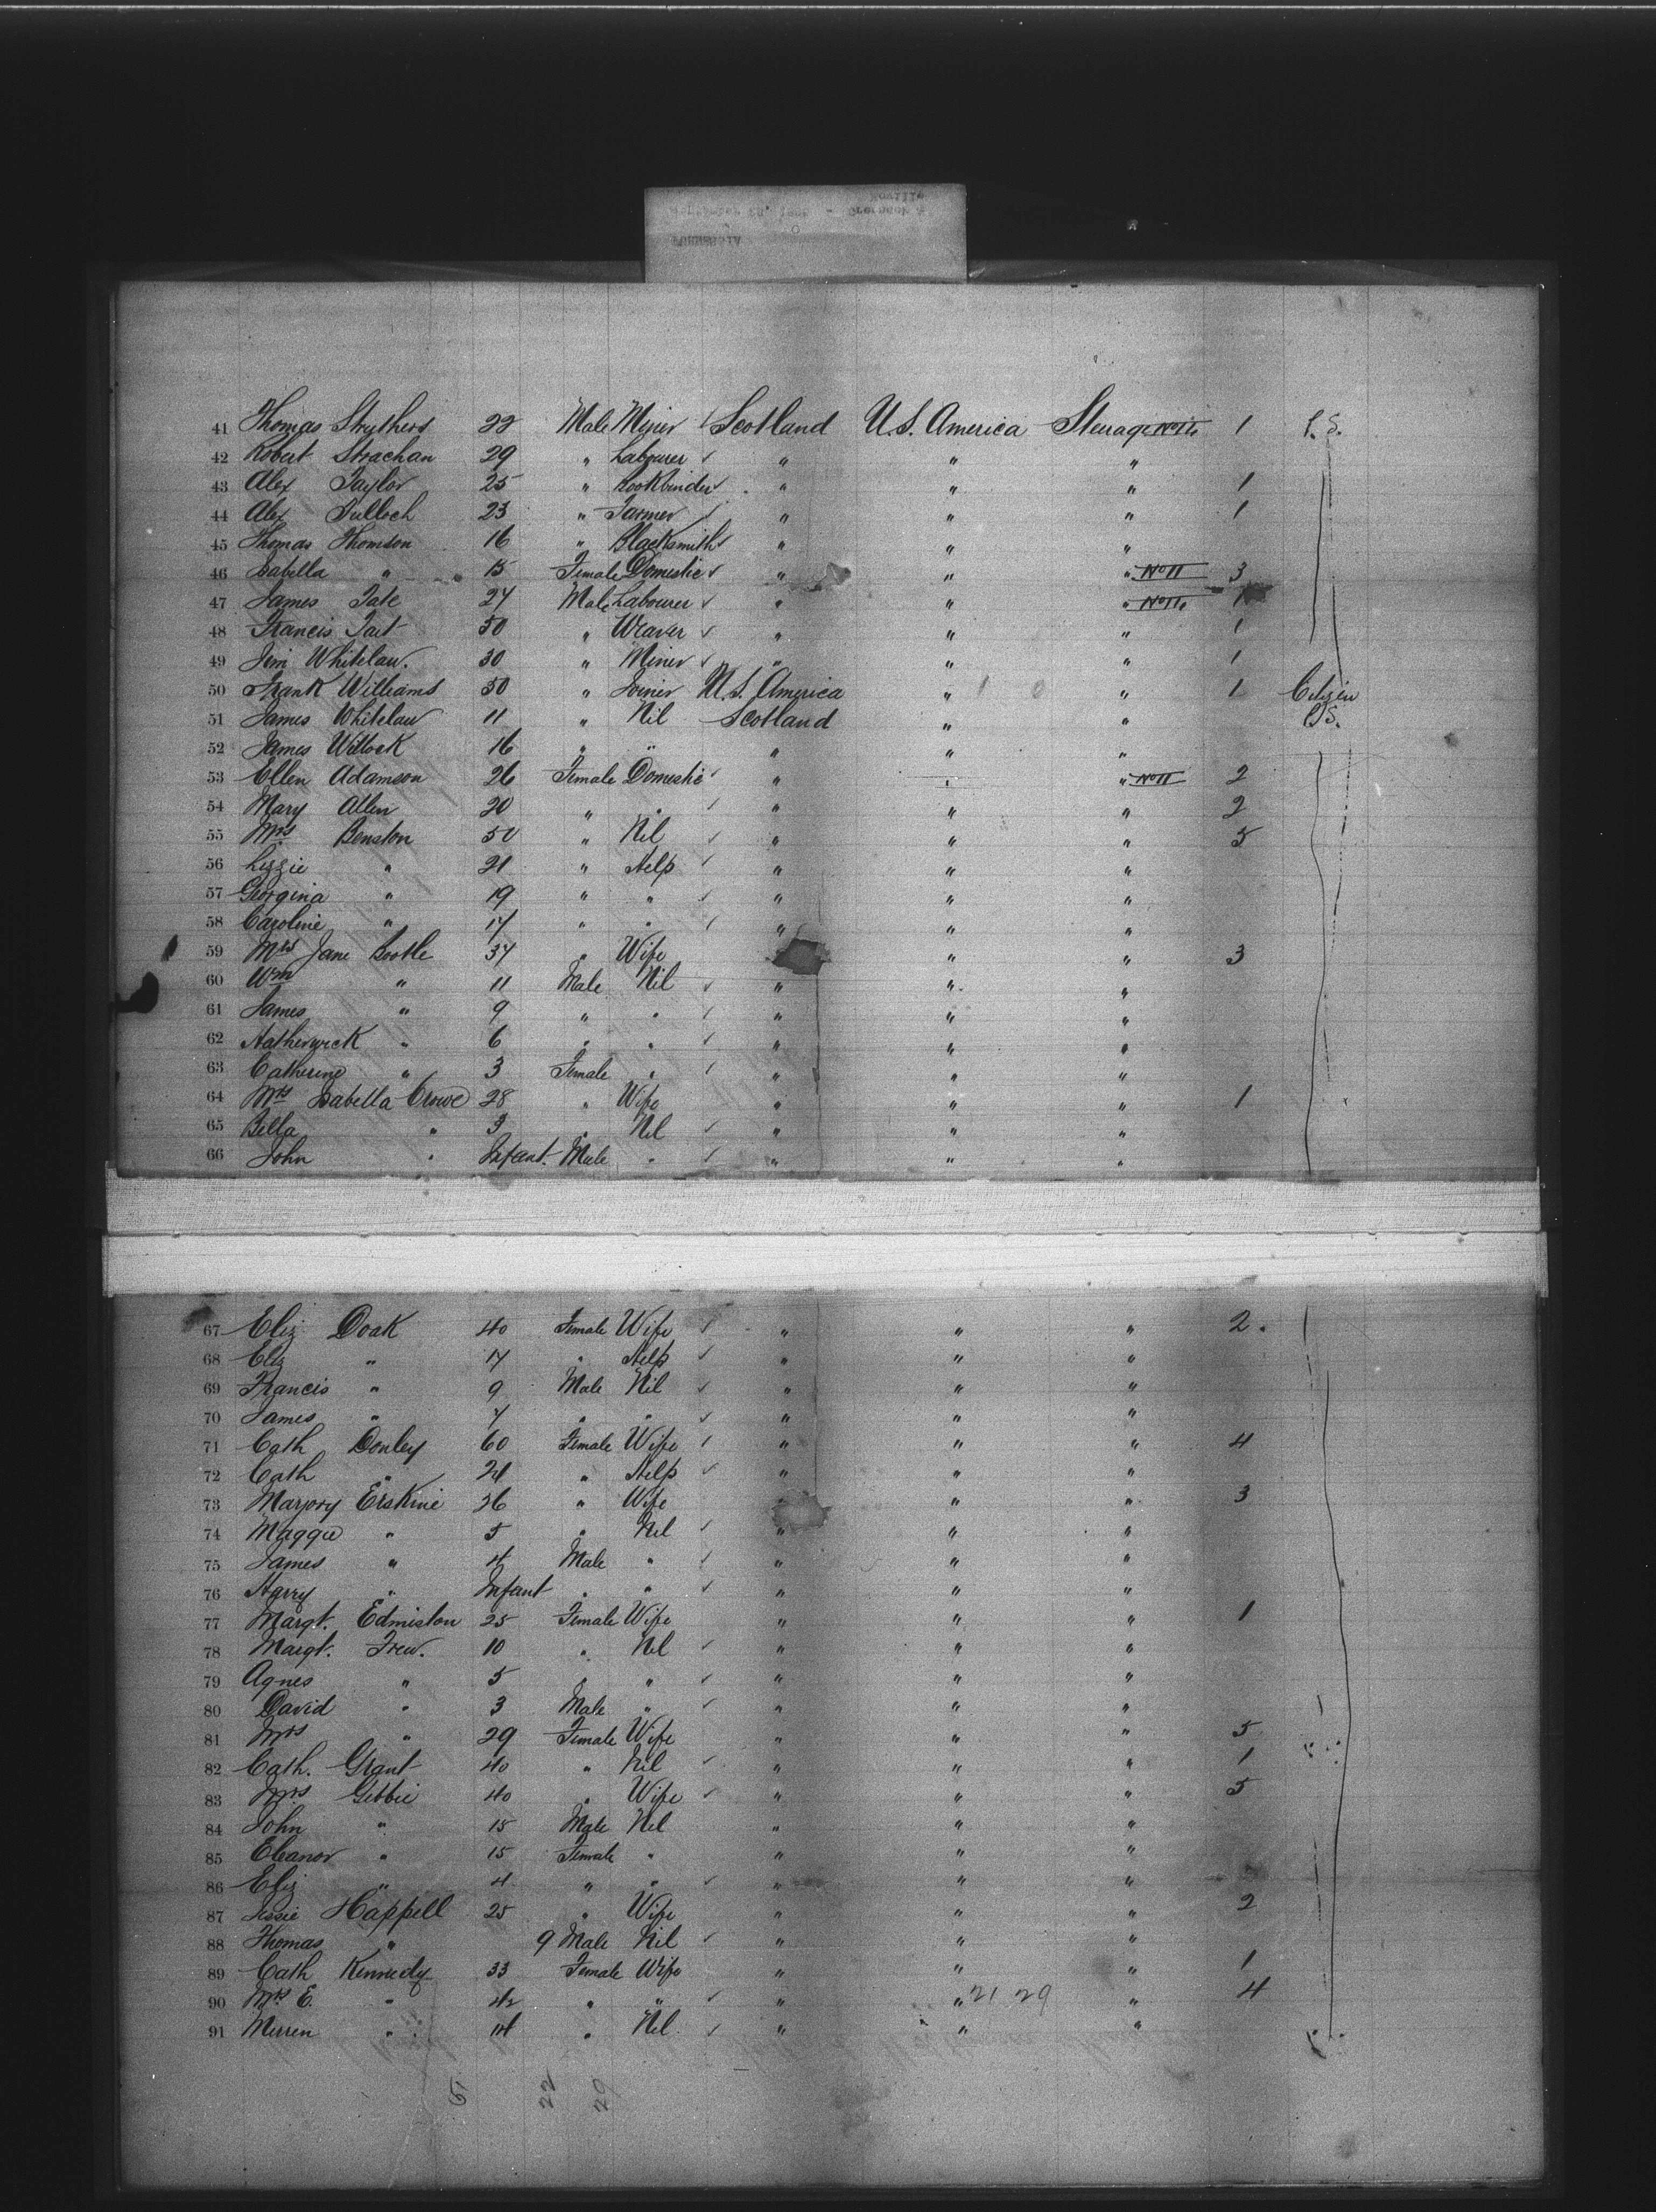 41 Thomas Struthers 22 Male Miner Scotland U.S. America Steerage No 1 1 P.S.
42 Robert Strachan 29 " Labourer " " "
43 Alex Taylor 25 " Bookbinder " " " 1
44 Alex Tulloch 23 " Farmer " " " 1
45 Thomas Thomson 16 " Blacksmith " " "
46 Isabella " 15 Female Domestic " " " No 11 3
47 James Tate 24 Male Labourer " " " 1
48 Francis Tait 50 " Weaver " " " 1
49 Jim Whitelaw. 30 " Miner " " " 1
50 Frank Williams 50 " Joiner U.S. America " " 1 Citizen
51 James Whitelaw 11 " Nil Scotland " " P.S.
52 James Willock 16 " " " " "
53 Ellen Adamson 26 Female Domestic " " " No 11 2
54 Mary Allen 20 " " " " " 2
55 Mrs Benston 50 " Nil " " " 5
56 Lizzie " 21 " Help " " "
57 Georgina " 19 " " " " "
58 Caroline " 17 " " " " "
59 Mrs Jane Bootle 37 " Wife " " 3
60 Wm " 11 Male Nil " " "
61 James " 9 " " " " "
62 " 6 " " " " "
63 Catherine " 3 Female " " " "
64 Mrs Isabella Crowe 28 " Wife " " " 1
65 Bella " 3 " Nil " " "
66 John " Infant. Male " " " "
67 Eliz Doak 40 Female Wife " " " 2
68 Eliz " 17 " Help " " "
69 Francis " 9 Male Nil " " "
70 James " 7 " " " " "
71 Cath Donley 60 Female Wife " " " 4
72 Cath " 21 " Help " " "
73 Marjory Erskine 26 " Wife " " 3
74 Maggie " 5 " Nil " " "
75 James " 4 Male " " " "
76 Harry " Infant " " " " "
77 Margt. Edmiston 25 Female Wife " " " 1
78 Margt. Frew. 10 " Nil " " "
79 Agnes " 5 " " " " "
80 David " 3 Male " " " "
81 Mrs " 29 Female Wife " " " 5
82 Cath. Grant 40 " Nil " " " 1
83 Mrs Gibbie 40 " Wife " " " 5
84 John " 15 Male Nil " " "
85 Eleanor " 15 Female " " " "
86 Eliz " 4 " " " " "
87 Jessie Happell 25 " Wife " " " 2
88 Thomas " 9 Male Nil " " "
89 Cath Kennedy 33 Female Wife " " " 1
90 Mrs E. " 42 " " " " 21 29 " 4
91 Mirren " 14 " Nil " " "
22 29